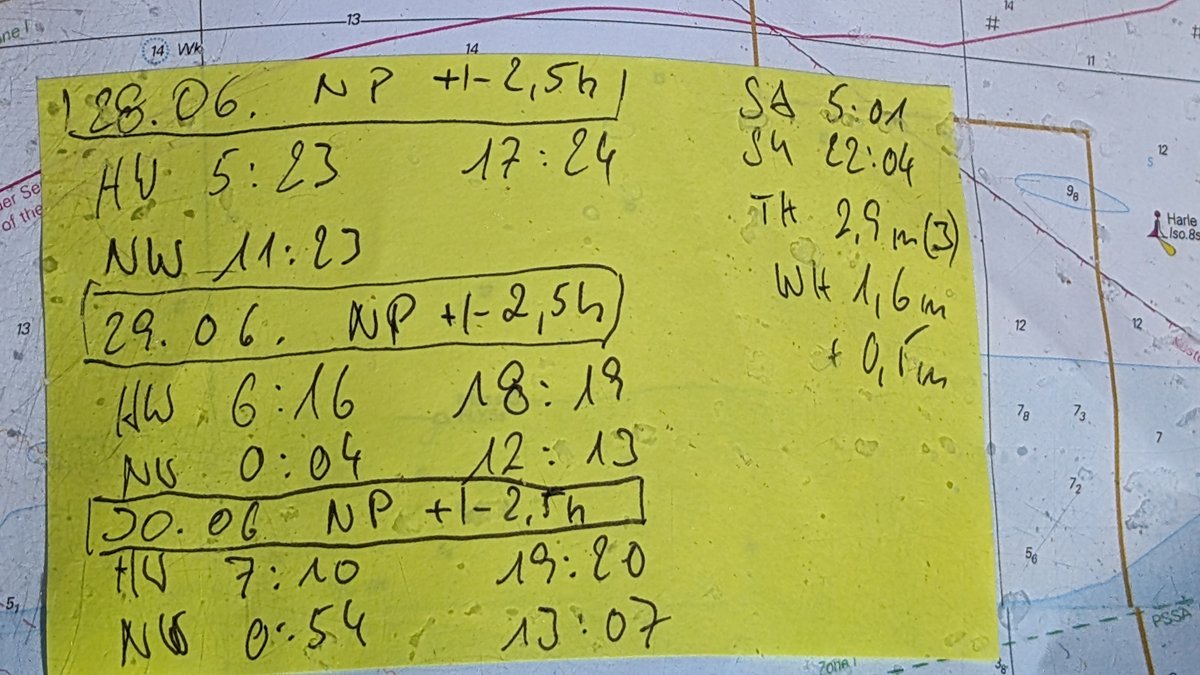 13
14 Wk
14
14
11
28.06. NP +/- 2,5h
HW 5:23 17:24
NW 11:23
29.06. NP +/- 2,5h
HW 6:16 18:19
NW 0:04 12:13
30.06 NP +/- 2,5h
HW 7:10 19:20
NW 0:54 13:07
SA 5:01
SU 22:04
TH 2,9m(3)
WH 1,6m
+ 0,5m
12
S
9₈
Harle
Iso.8s
of the
13
12
12
7₈
7₃
7
7₂
5₆
5₁
PSSA
3₈